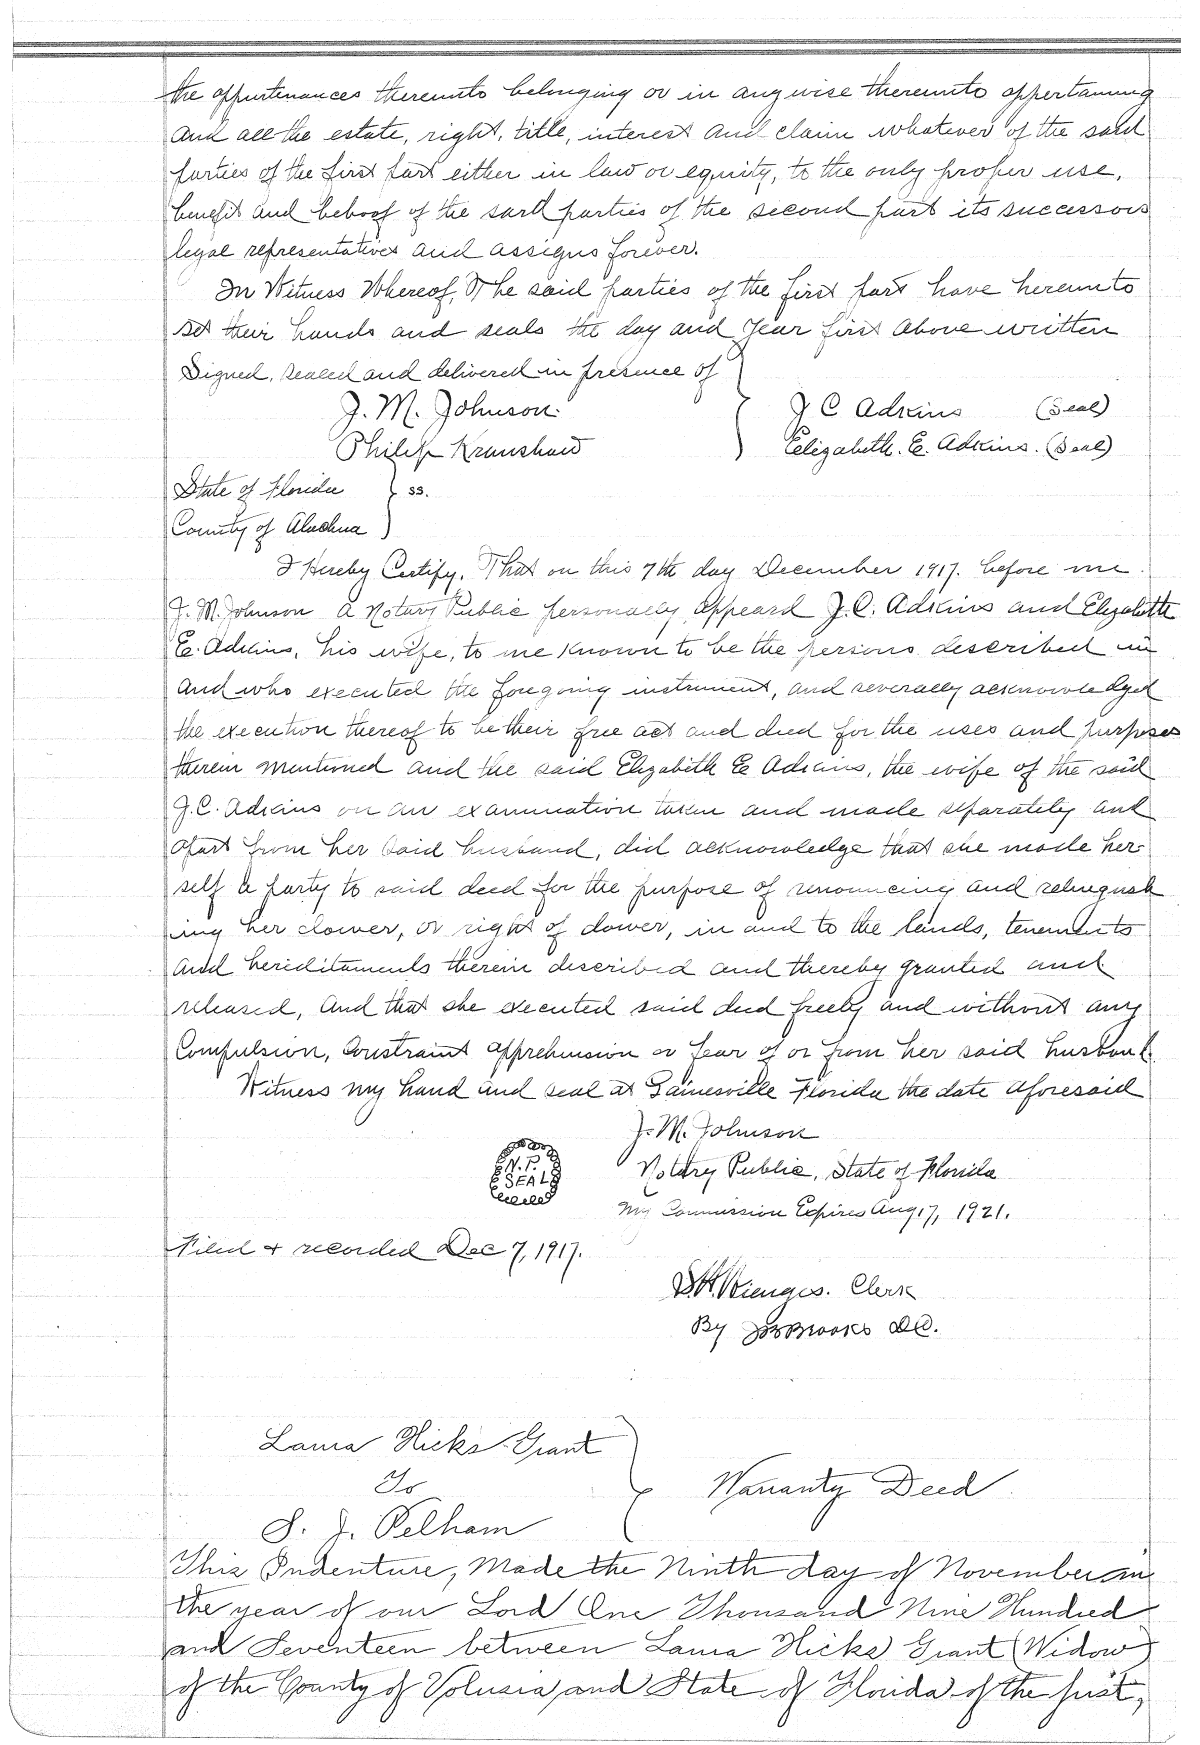 the appurtenances thereunto belonging or in anywise thereunto appertaining
and all the estate, right, title, interest and claim whatever of the said
parties of the first part either in law or equity, to the only proper use,
benefit and behoof of the said parties of the second part its successors
legal representatives and assigns forever.
In Witness Whereof, The said parties of the first part have hereunto
set their hands and seals the day and year first above written
Signed, sealed and delivered in presence of
J. M. Johnson.
J C Adkins (Seal)
Philip
Elizabeth. E. Adkins. (Seal)
State of Florida } ss.
County of Alachua )
I Hereby Certify, That on this 7th day December 1917. before me
J. M. Johnson a Notary Public personally appeard J. C. Adkins and Elizabeth
E. Adkins, his wife, to me known to be the persons described in
and who executed the foregoing instrument, and severally acknowledged
the execution thereof to be their free act and deed for the uses and purposes
therein mentioned and the said Elizabeth E Adkins, the wife of the said
J. C. Adkins on an examination taken and made separately and
apart from her said husband, did acknowledge that she made her-
self a party to said deed for the purpose of renouncing and relinquish
ing her dower, or right of dower, in and to the lands, tenements
and hereditaments therein described and thereby granted and
released, and that she executed said deed freely and without any
Compulsion, Constraint apprehension or fear of or from her said husband.
Witness my hand and seal at Gainesville Florida the date aforesaid
J. M. Johnson
N. P.
SEAL
Notary Public, State of Florida
My Commission Expires Aug 17, 1921.
Filed & recorded Dec 7, 1917.
S. H. Wienges. Clerk
By Brooks D C.
Laura Hicks Grant
To
Warranty Deed
S. J. Pelham
This Indenture, Made the Ninth day of November in
the year of our Lord One Thousand Nine Hundred
and Seventeen between Laura Hicks Grant (Widow)
of the County of Volusia, and State of Florida of the first,